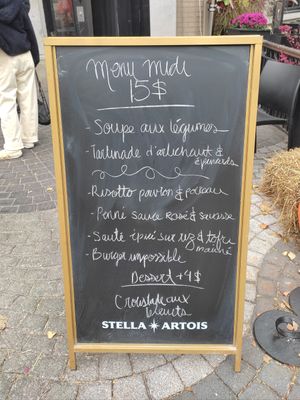 Menu midi
15$
- Soupe aux légumes
- Tartinade d'artichaut &
épinards
- Risotto poivron & poireau
- Penné sauce rosé & saucisse
- Sauté épicé sur riz & tofu
mariné
- Burger impossible
Dessert +4$
Croustade aux
bleuets
STELLA ARTOIS